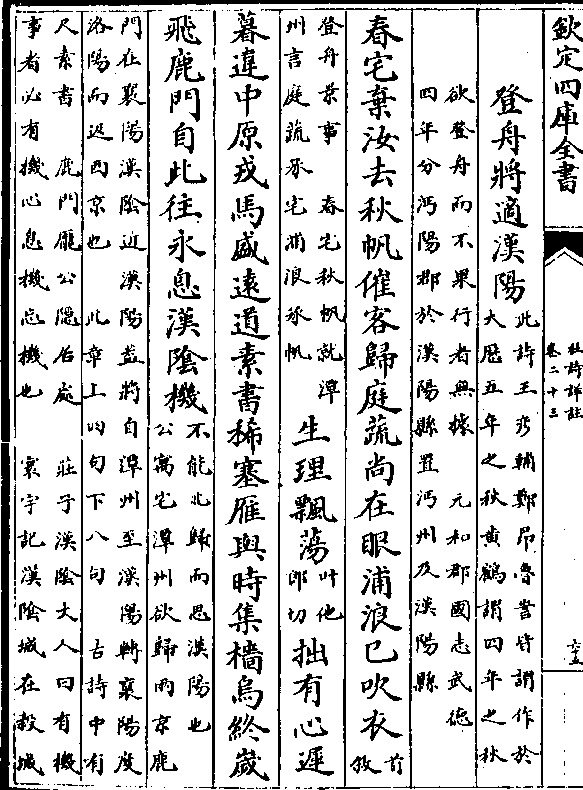 欽定四庫全書
杜詩詳註
卷二十三
登舟將適漢陽
此詩王彥輔鄭昂魯訔皆謂作於
大厯五年之秋黃鶴謂四年之秋
欲登舟而不果行者無據 元和郡國志武德
四年分沔陽郡於漢陽縣置沔州及漢陽縣
春宅棄汝去秋帆催客歸庭蔬尚在眼浦浪已吹衣
首
敘
登舟景事 春宅秋帆就潭
州言庭蔬承宅浦浪承帆
生理飄蕩
叶他
郎切
拙有心遲
暮違中原戎馬盛遠道素書稀塞雁與時集檣烏終歲
飛鹿門自此往永息漢陰機
不能北歸而思漢陽也
公寓宅潭州欲歸兩京鹿
門在襄陽漢陰近漢陽蓋將自潭州至漢陽轉襄陽度
洛陽而返西京也 此章上四句下八句 古詩中有
尺素書 鹿門龐公隱居處 莊子漢陰丈人曰有機
事者必有機心息機忘機也 寰宇記漢陰城在穀城